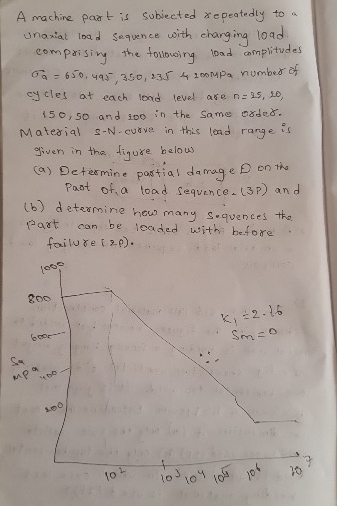 A machine part is subjected repeatedly to a
unaxial load sequence with changing load
comprising the following load amplitudes
σa = 650, 495, 350, 235 & 200MPa number of
cycles at each load level are n=25, 20,
150, 50 and 300 in the same order.
Material S-N-curve in this load range is
given in the figure below
(a) Determine partial damage D on the
Part of, a load sequence. (3P) and
(b) determine how many sequences the
Part can be loaded with before
failure (2P).
1000
800
K1 = 2.76
Sm = 0
600
Sa
MPa
400
200
10² 10³ 10⁴ 10⁵ 10⁶ 10⁷